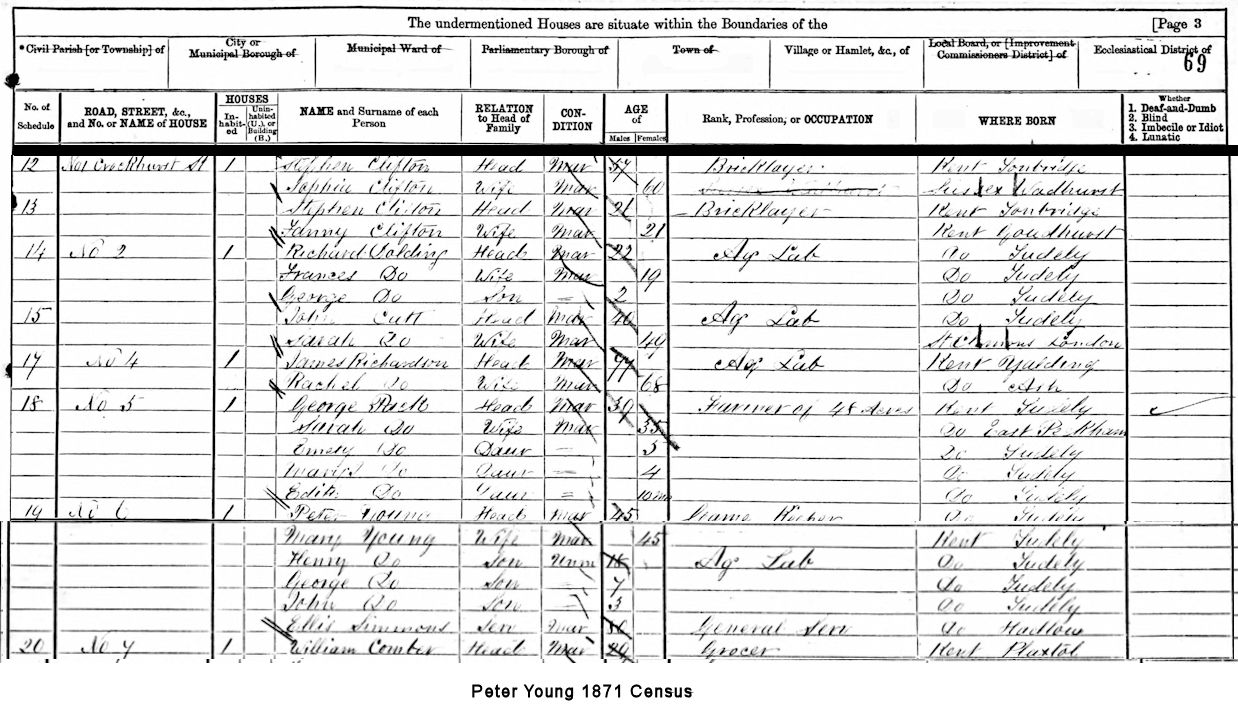 The undermentioned Houses are situate within the Boundaries of the [Page 3
*Civil Parish [or Township] of City or Municipal Borough of Municipal Ward of Parliamentary Borough of Town of Village or Hamlet, &c., of Local Board, or [Improvement Commissioners District] of Ecclesiastical District of
69
No. of Schedule ROAD, STREET, &c., and No. or NAME of HOUSE HOUSES Inhabited Uninhabited (U.), or Building (B.) NAME and Surname of each Person RELATION to Head of Family CONDITION AGE of Males Females Rank, Profession, or OCCUPATION WHERE BORN Whether 1. Deaf-and-Dumb 2. Blind 3. Imbecile or Idiot 4. Lunatic
12 No 1 Crockhurst St 1 Stephen Clifton Head Mar 57 Bricklayer Kent Tonbridge
Sophia Clifton Wife Mar 60 Sussex Wadhurst
13 Stephen Clifton Head Mar 21 Bricklayer Kent Tonbridge
Fanny Clifton Wife Mar 21 Kent Goudhurst
14 No 2 1 Richard Head Mar 22 Ag Lab Do Tudely
Frances Do Wife Mar 19 Do Tudely
George Do Son 2 Do Tudely
15 John Cutt Head Mar 40 Ag Lab Do Tudely
Sarah Do Wife Mar 49 London
17 No 4 1 James Richardson Head Mar Ag Lab Kent Yalding
Rachel Do Wife Mar 68 Do Ash
18 No 5 1 George Head Mar 39 Farmer of 48 Acres Kent Tudely
Sarah Do Wife Mar 35 Do East Peckham
Emily Do Daur 5 Do Tudely
Do Daur 4 Do Tudely
Edith Do Daur 10 mo Do Tudely
19 No 6 1 Peter Young Head Mar 45 Do Tudely
Mary Young Wife Mar 45 Kent Tudely
Henry Do Son Unm 18 Ag Lab Do Tudely
George Do Son 7 Do Tudely
John Do Son 3 Do Tudely
Ellis Simmons Serv Mar General Serv Do Hadlow
20 No 7 1 William Comber Head Mar 29 Grocer Kent Plaxtol
Peter Young 1871 Census